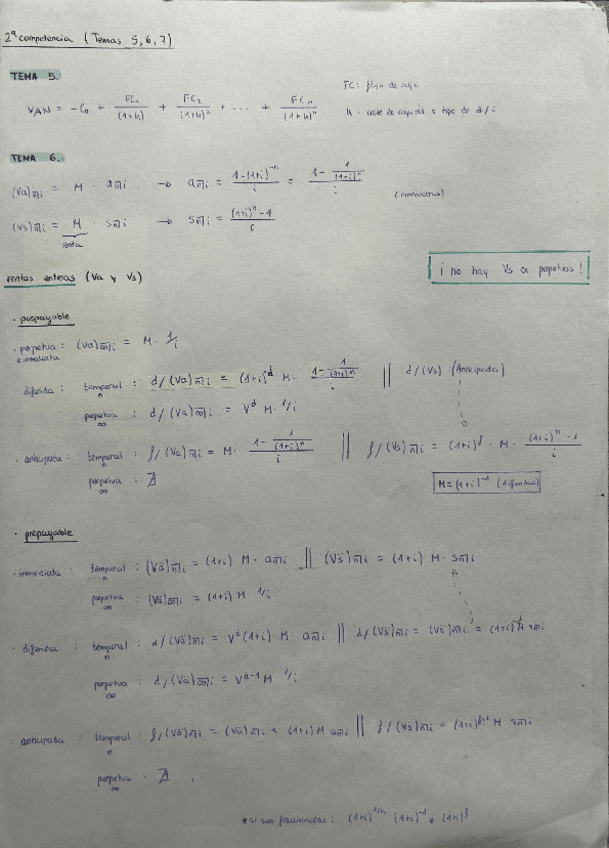 2ª competencia ( Temas 5, 6, 7 )
TEMA 5.
FC: flujo de caja
VAN = -C₀ + FC₁/(1+k) + FC₂/(1+k)² + ... + FCₙ/(1+k)ⁿ
k : coste de capital o tipo de d/i
TEMA 6.
(Va)n̅|i = M · an̅|i → an̅|i = 1-(1+i)⁻ⁿ/i = 1 - 1/(1+i)ⁿ/i
(Vs)n̅|i = M · sn̅|i → sn̅|i = (1+i)ⁿ - 1/i
renta
rentas enteras (Va y Vs)
¡ no hay Vs a perpetuas !
· pospayable
· perpetua : (Va)∞̅|i = M · 1/i
e inmediata
diferida : temporal : d/(Va)n̅|i = (1+i)⁻ᵈ M · 1 - 1/(1+i)ⁿ/i || d/(Vs) : (Anticipada)
n
perpetua : d/(Va)∞̅|i = Vᵈ M · 1/i
∞
· anticipada : temporal : f/(Va)n̅|i = M · 1 - 1/(1+i)ⁿ/i || f/(Vs)n̅|i = (1+i)ᶠ · M · (1+i)ⁿ - 1/i
n
perpetua : ∄
∞
M = (1+i)⁻ᵈ (diferidas)
· prepayable
· inmediata : temporal : (Vä)n̅|i = (1+i) M · an̅|i || (Vs̈)n̅|i = (1+i) M · sn̅|i
n
perpetua : (Vä)∞̅|i = (1+i) M · 1/i
∞
· diferida : temporal : d/(Vä)n̅|i = Vᵈ(1+i) M · an̅|i || d/(Vs̈)n̅|i = (Vs̈)n̅|i = (1+i) M sn̅|i
n
perpetua : d/(Vä)∞̅|i = Vᵈ⁻¹ M 1/i
∞
· anticipada : temporal : f/(Vä)n̅|i = (Vä)n̅|i = (1+i) M an̅|i || f/(Vs̈)n̅|i = (1+i)ᶠ⁺¹ M sn̅|i
n
perpetua : ∄
∞
* si son fraccionadas : (1+i)¹/ᵏ (1+i)⁻ᵈ o (1+i)ᶠ